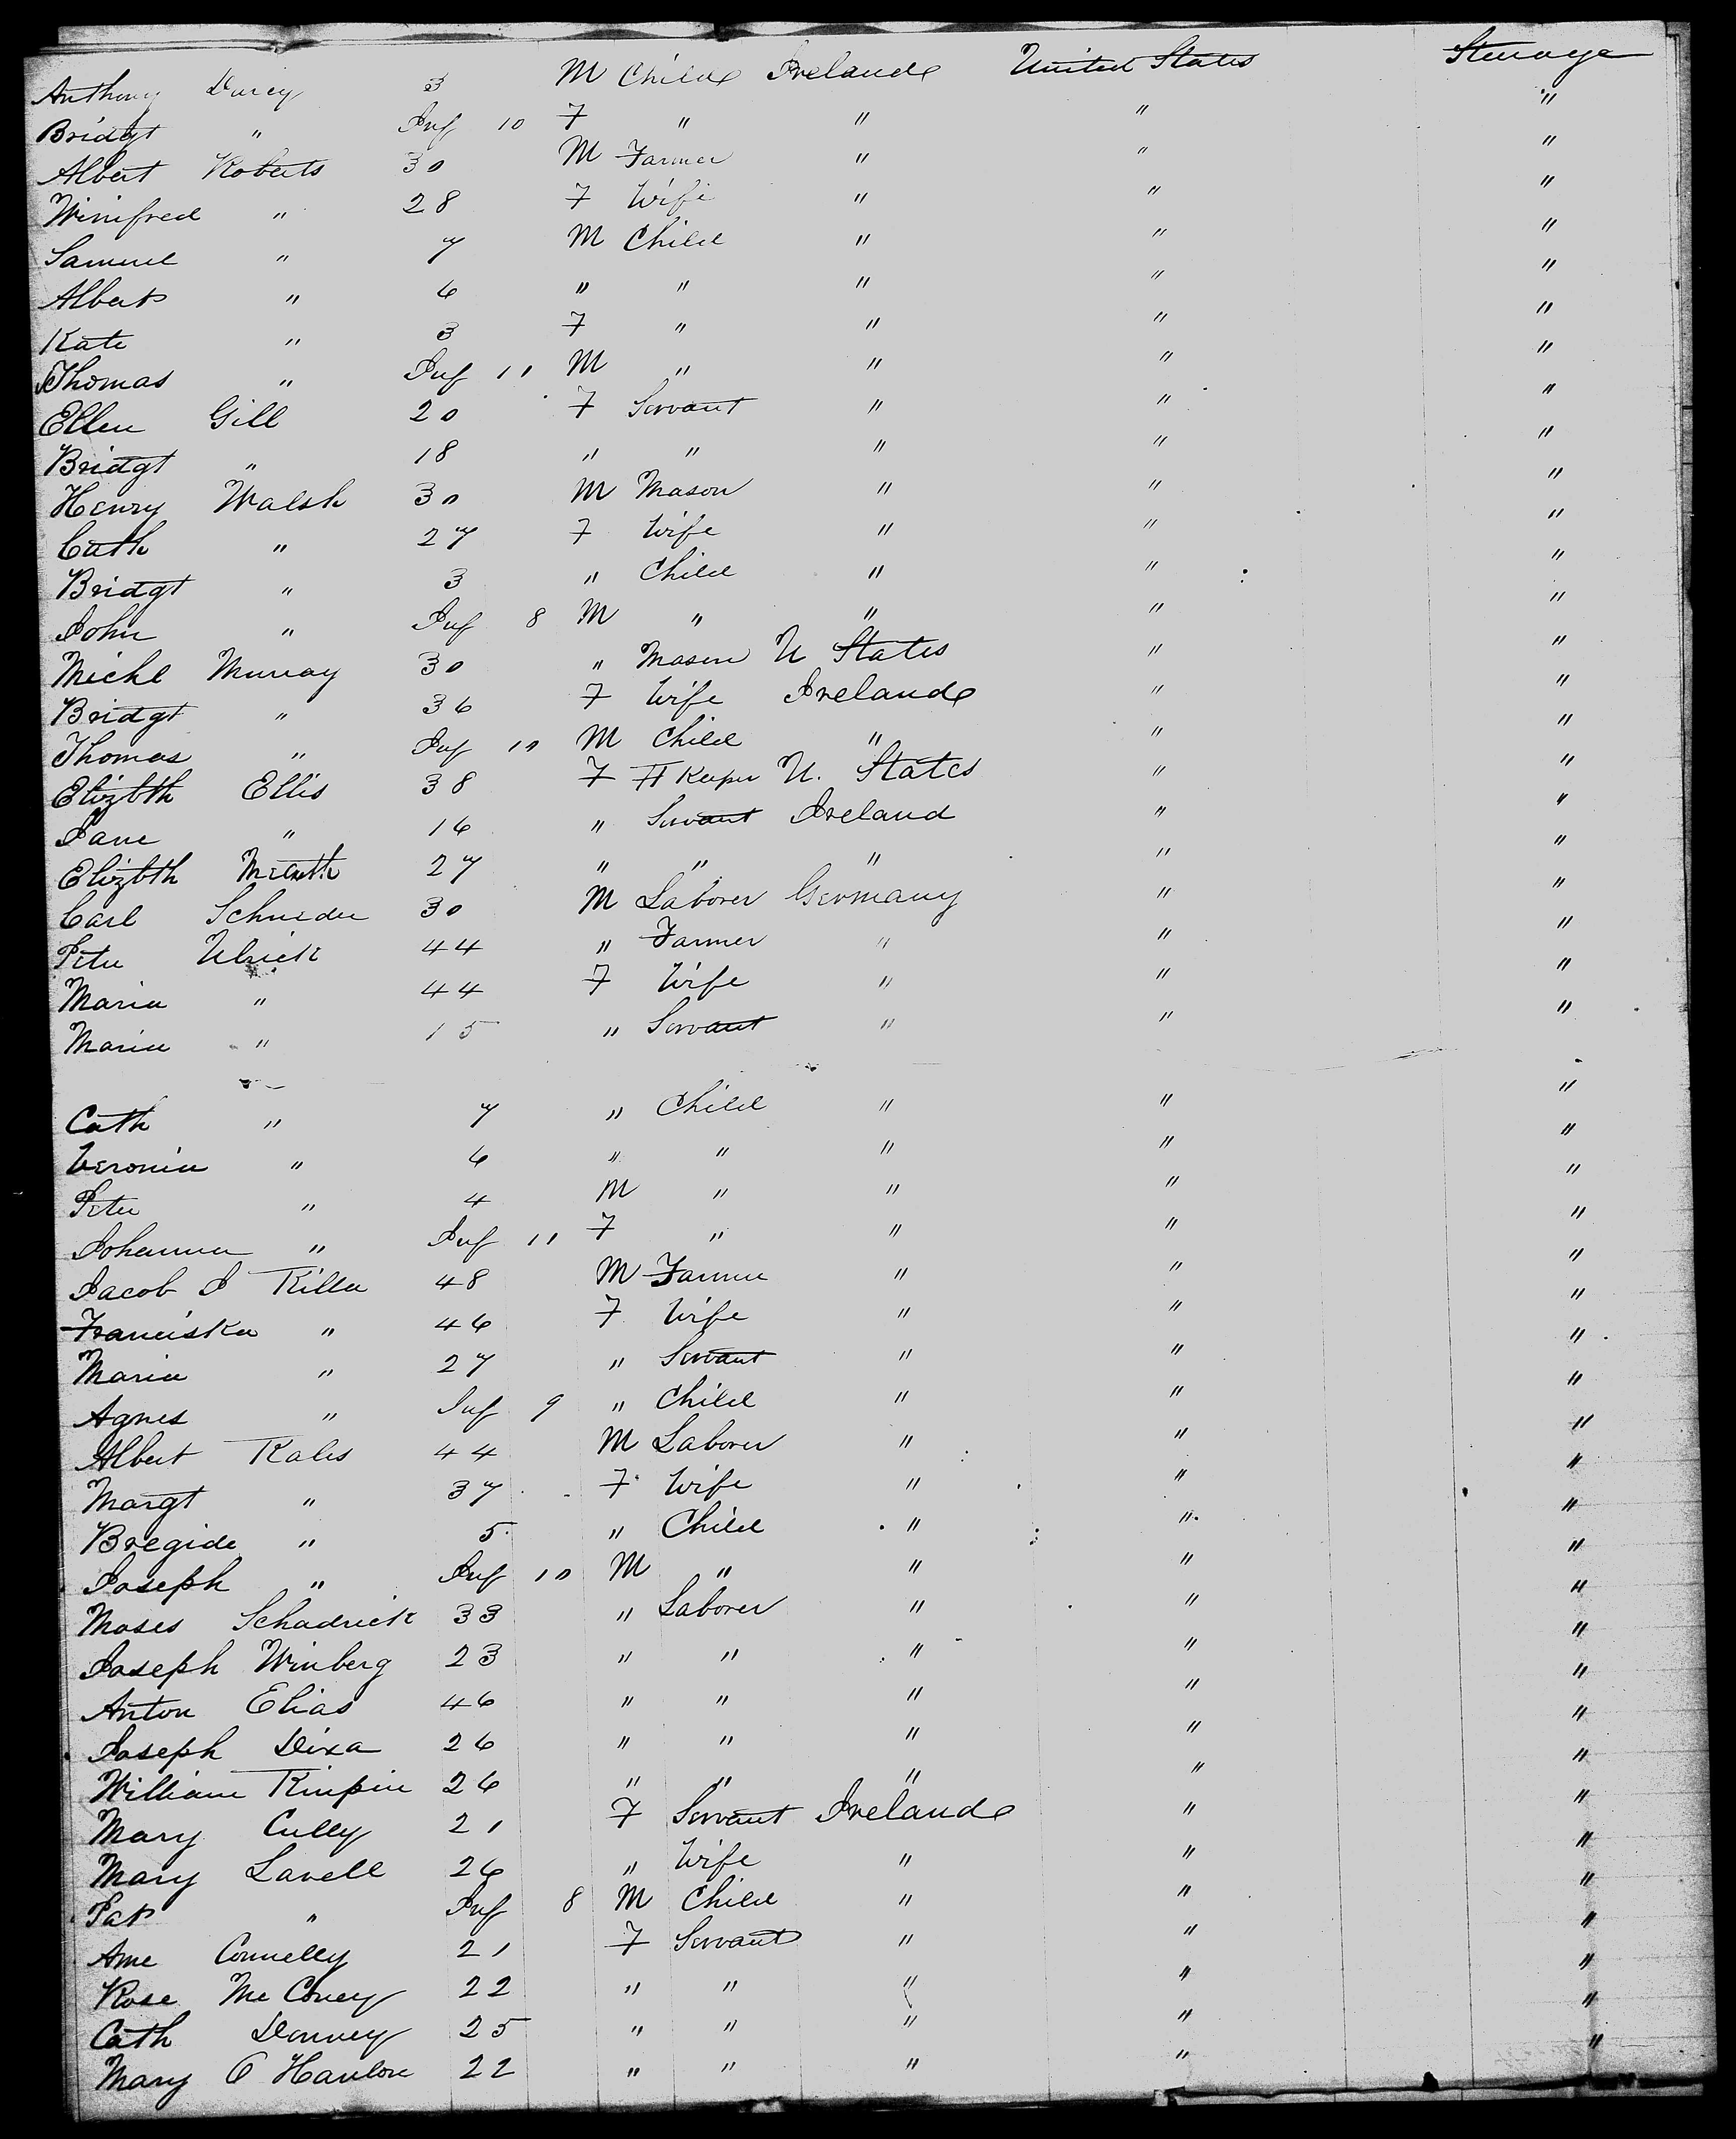 Anthony Darcy 3 M Child Ireland United States Steerage
Bridgt " Inf 10 F " " " "
Albert Roberts 30 M Farmer " " "
Winifred " 28 F Wife " " "
Samuel " 7 M Child " " "
Albert " 6 " " " " "
Kate " 3 F " " " "
Thomas " Inf 11 M " " " "
Ellen Gill 20 F Servant " " "
Bridgt " 18 " " " " "
Henry Walsh 30 M Mason " " "
Cath " 27 F Wife " " "
Bridgt " 3 " Child " " "
John " Inf 8 M " " " "
Michl Murray 30 " Mason U States " "
Bridgt " 36 F Wife Ireland " "
Thomas " Inf 10 M Child " " "
Elizbth Ellis 38 F H Keeper U. States " "
Jane " 16 " Servant Ireland " "
Elizbth 27 " " " " "
Carl Schneider 30 M Laborer Germany " "
Peter Ulrick 44 " Farmer " " "
Maria " 44 F Wife " " "
Maria " 15 " Servant " " "
Cath " 7 " Child " " "
Veronia " 6 " " " " "
Peter " 4 M " " " "
Johanna " Inf 11 F " " " "
Jacob J Killer 48 M Farmer " " "
Franciska " 46 F Wife " " "
Maria " 27 " Servant " " "
Agnes " Inf 9 " Child " " "
Albert Kales 44 M Laborer " " "
Margt " 37 F Wife " " "
Bregide " 5 " Child " " "
Joseph " Inf 10 M " " " "
Moses Schadrick 33 " Laborer " " "
Joseph Winberg 23 " " " " "
Anton Elias 46 " " " " "
Joseph Dixa 26 " " " " "
William Kinpin 26 " " " " "
Mary Cully 21 F Servant Ireland " "
Mary Lavell 26 " Wife " " "
Pat " Inf 8 M Child " " "
Ann Connelly 21 F Servant " " "
Rose Mc Covey 22 " " " " "
Cath Donvey 25 " " " " "
Mary O Hanlon 22 " " " " "